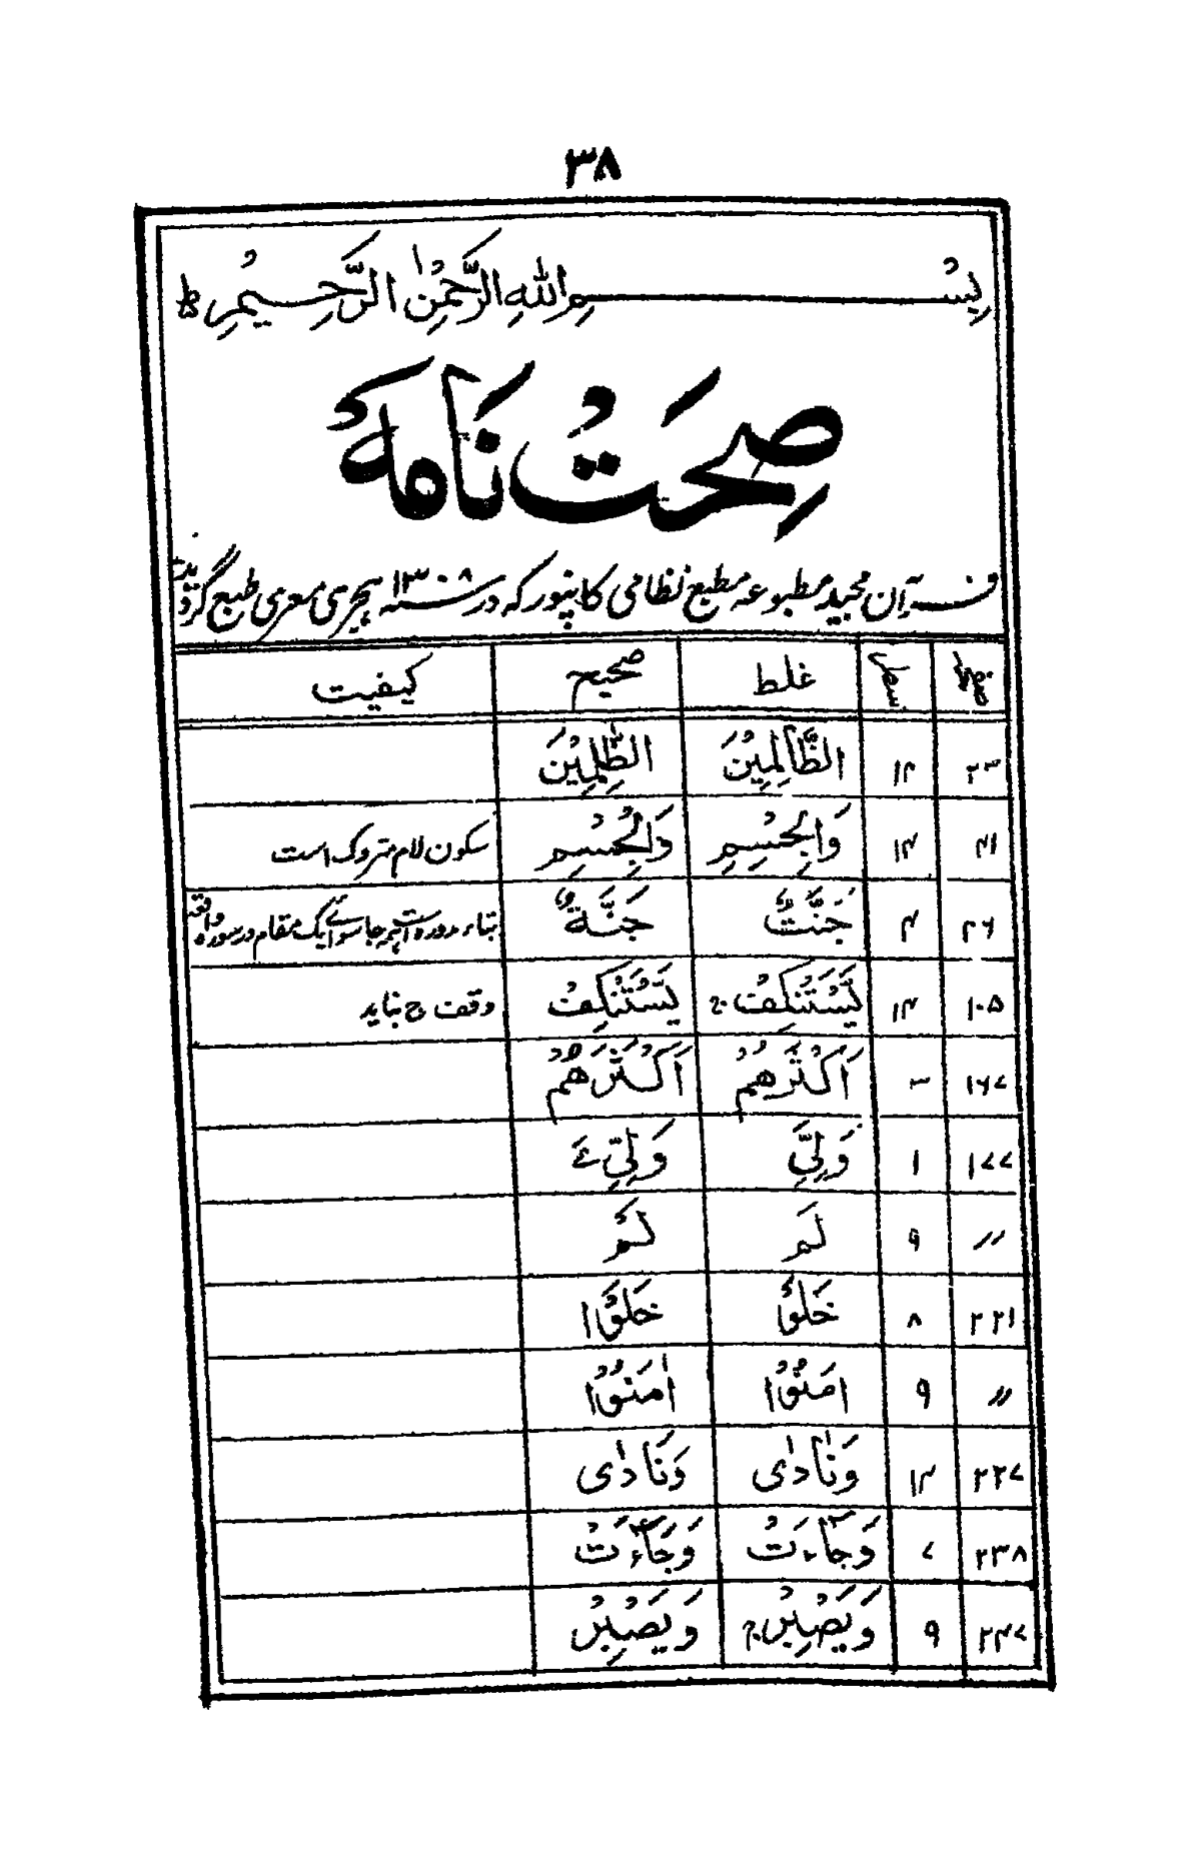 ۳۸
بِسْمِ اللهِ الرَّحْمٰنِ الرَّحِيْمِ ط
صِحَتْ نَامَهُ
قرآن مجید مطبوعہ مطبع نظامی کانپور کہ در ۱۳۰۸ سنہ ہجری معری طبع گردید
صفحہ سطر غلط صحیح کیفیت
۲۳ ۱۲ الظَّالِمِيْنَ الظّٰلِمِيْنَ
۴۱ ۱۴ وَالْجِسْمِ وَالْجِسْمِ سکون لام متروک است
۴۶ ۴ جَنَّتٌ جَنَّةٌ بتاء مدورہ است ہر جا سوائے یک مقام در سورہ واقعہ
۱۰۵ ۱۴ يَّسْتَنْكِفْ ج يَّسْتَنْكِفْ وقف ج نباید
۱۶۷ ۳ اَكْثَرَهُمْ اَكْثَرُهُمْ
۱۷۷ ۱ وَلِيَّ وَلِيّٖ ےَ
〃 ۹ لَم لَمْ
۲۲۱ ۸ خَلَقُوْ خَلَقُوْا
〃 ۹ امَنُوْا اٰمَنُوْا
۲۲۷ ۱۴ وَنَادٰى وَنَادٰى
۲۳۸ ۷ وَجَآءَتْ وَجَآءَتْ
۲۴۷ ۹ وَيَصْبِرْ ج وَيَصْبِرْ